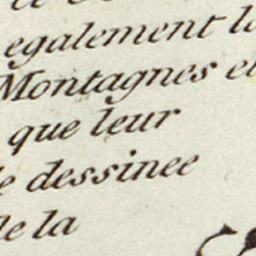 egalement l
Montagnes et
que leur
e dessinee
de la